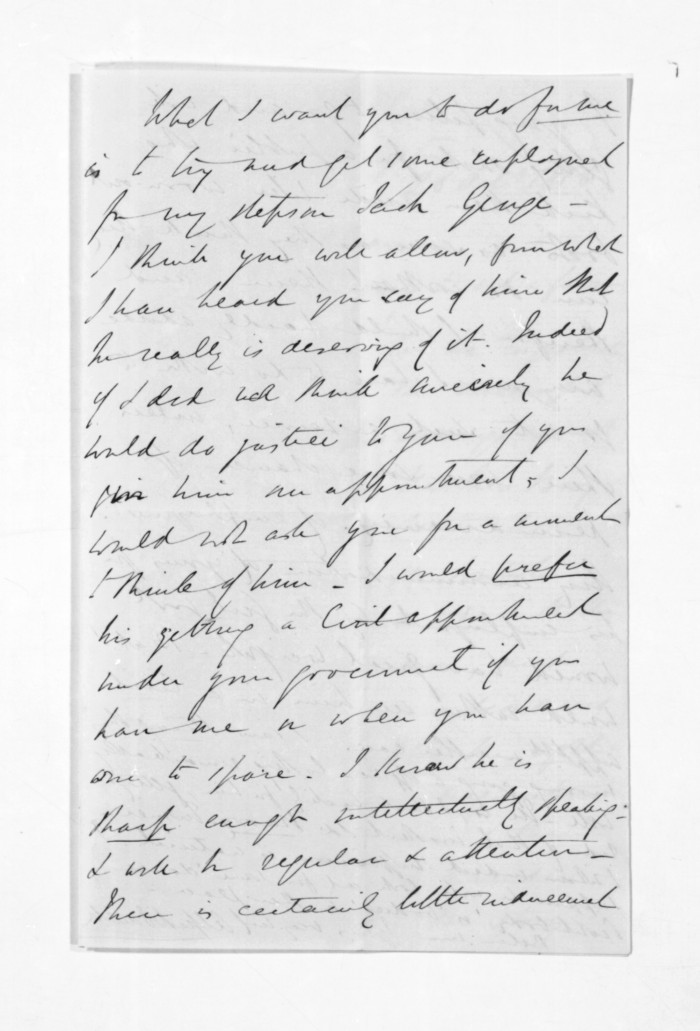 What I want you to do for me
is to try and get some employment
for my stepson Jack George —
I think you will allow, from what
I have heard you say of him that
he really is deserving of it. Indeed
if I did not think sincerely he
would do justice to you if you
give him an appointment, I
would not ask you for a moment
to think of him — I would prefer
his getting a Civil appointment
under your government if you
have one or when you have
one to spare — I know he is
sharp enough intellectually speaking —
& will be regular & attentive —
There is certainly little inducement